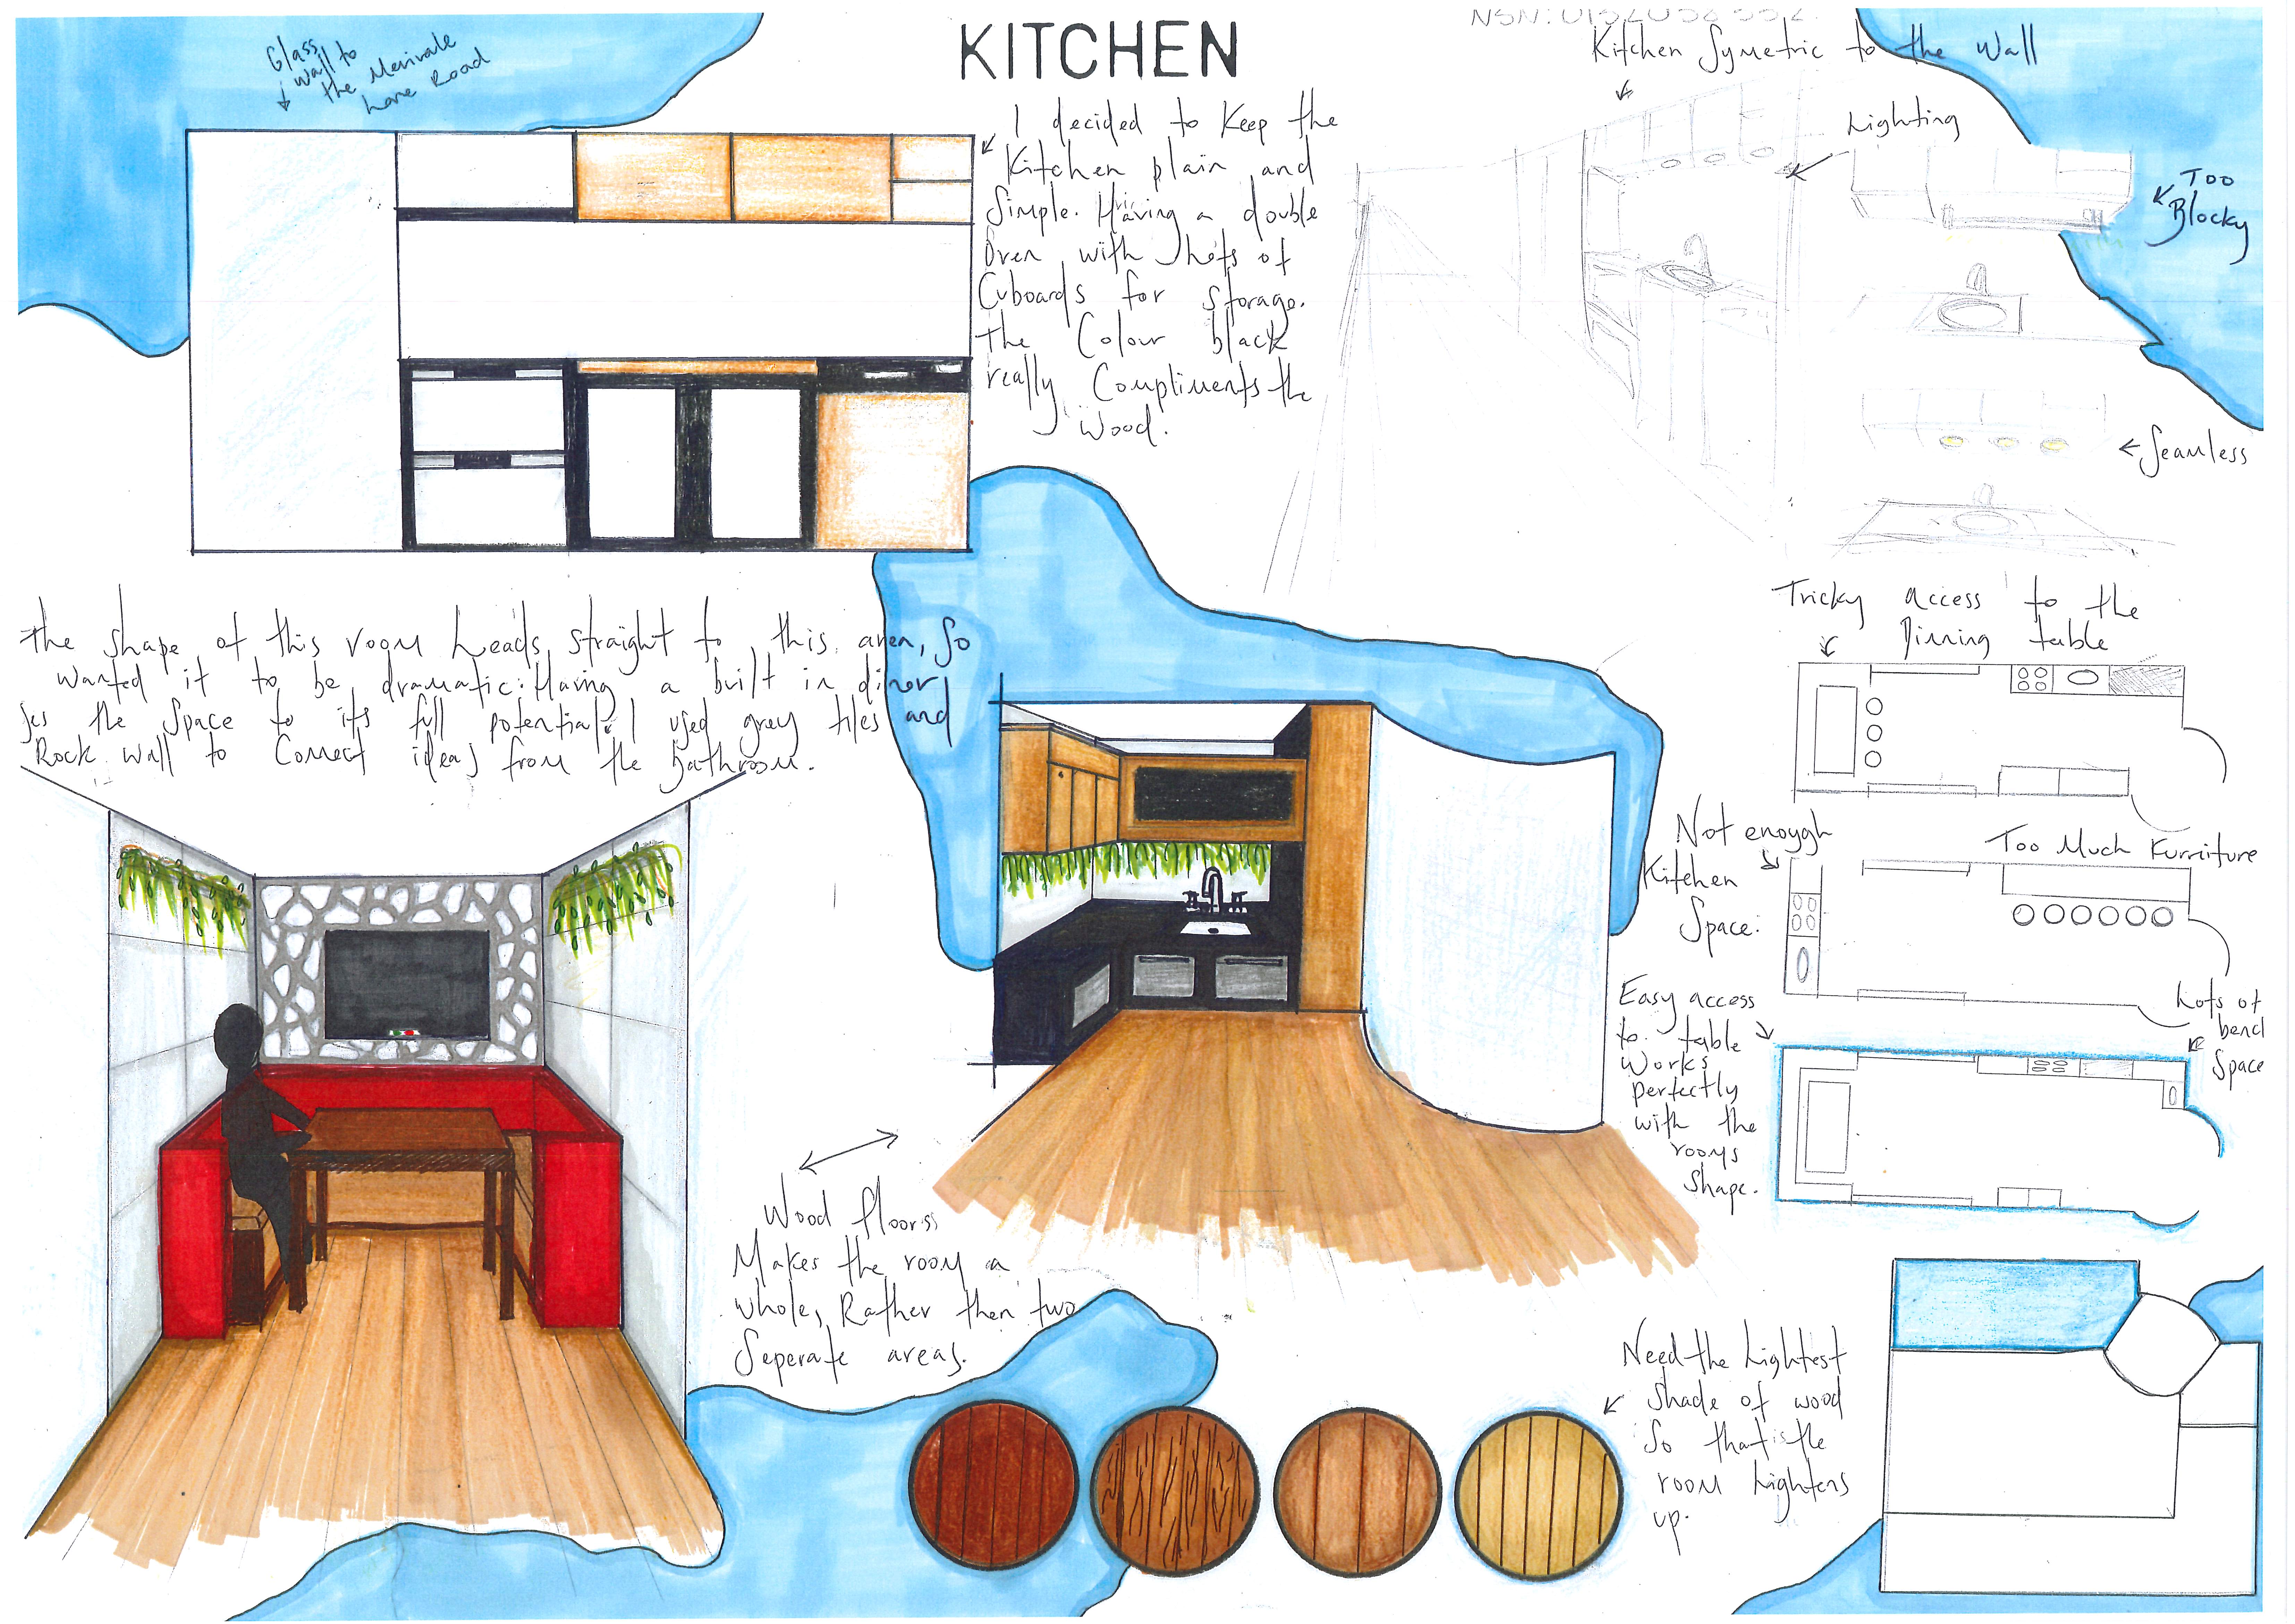 KITCHEN
Glass
Wall to
the Merivale
Lane Road
I decided to Keep the
Kitchen plain and
Simple. Having a double
Oven with Lots of
Cuboards for Storage.
The Colour black
really Compliments the
Wood.
Kitchen Symetric to the Wall
Lighting
Too
Blocky
Seamless
The shape of this room Leads straight to this area, So
wanted it to be dramatic. Having a built in dinor
ses the Space to its full potential. I used grey tiles and
Rock Wall to Connect ideas from the Bathroom.
Tricky access to the
Dinning table
Not enoygh
Kitchen
Space.
Too Much Furniture
Easy access
to table
Works
perfectly
with the
rooms
Shape.
Lots of
bench
Space
Wood floors
Makes the room a
whole, Rather then two
Seperate areas.
Need the Lightest
Shade of wood
So that the
room Lightens
up.